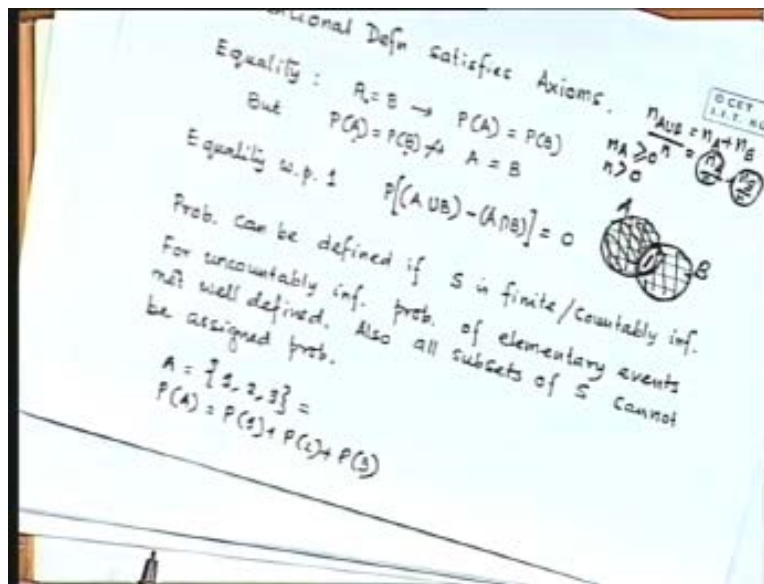 ational Defn satisfies Axioms.
Equality : A = B → P(A) = P(B)
But P(A) = P(B) ↛ A = B
Equality w.p. 1 P[(A ∪ B) - (A ∩ B)] = 0
n_A∪B = n_A + n_B
n_A ≥ 0
n > 0
A
B
Prob. can be defined if S is finite/countably inf.
For uncountably inf. prob. of elementary events
not well defined. Also all subsets of S cannot
be assigned prob.
A = {1, 2, 3} =
P(A) = P(1) + P(2) + P(3)